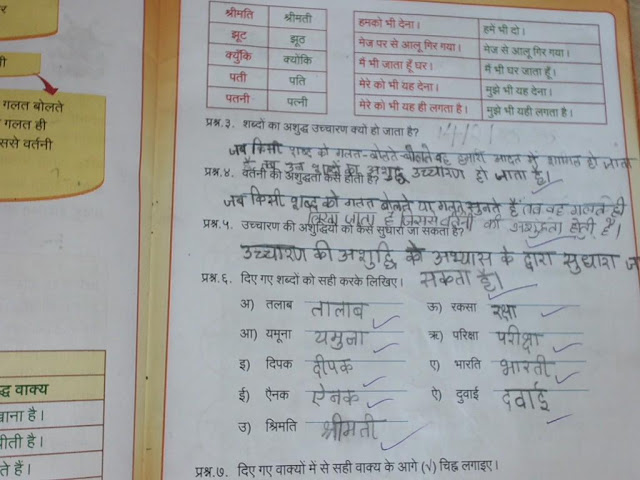 र
ी
गलत बोलते
गलत ही
ससे वर्तनी
द्ध वाक्य
ाना है।
पीती है।
ते हैं।
श्रीमति श्रीमती
झूट झूठ
क्युँकि क्योंकि
पती पति
पतनी पत्नी
हमको भी देना। हमें भी दो।
मेज पर से आलू गिर गया। मेज से आलू गिर गया।
मैं भी जाता हूँ घर। मैं भी घर जाता हूँ।
मेरे को भी यह देना। मुझे भी यह देना।
मेरे को भी यह ही लगता है। मुझे भी यही लगता है।
प्रश्न.३. शब्दों का अशुद्ध उच्चारण क्यो हो जाता है?
जब किसी शब्द को गलत-बोलते-बोलते वह हमारी आदत में शामिल हो जाता
है तब उन शब्दों का अशुद्ध उच्चारण हो जाता है।
प्रश्न.४. वर्तनी की अशुद्धता कैसे होती है?
जब किसी शब्द को गलत बोलते या गलत सुनते हैं तब वह गलत ही
लिखा जाता है जिससे वर्तनी की अशुद्धता होती है।
प्रश्न.५. उच्चारण की अशुद्धियों को कैसे सुधारा जा सकता है?
उच्चारण की अशुद्धि को अभ्यास के द्वारा सुधारा ज
सकता है।
प्रश्न.६. दिए गए शब्दों को सही करके लिखिए।
अ) तलाब तालाब ऊ) रकसा रक्षा
आ) यमूना यमुना ऋ) परिक्षा परीक्षा
इ) दिपक दीपक ए) भारति भारती
ई) एैनक ऐनक ऐ) दुवाई दवाई
उ) श्रिमति श्रीमती
प्रश्न.७. दिए गए वाक्यों में से सही वाक्य के आगे (√) चिह्न लगाइए।